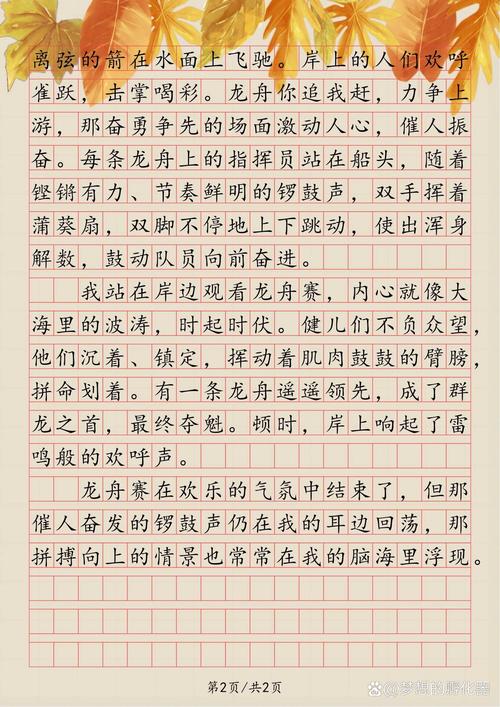 离弦的箭在水面上飞驰。岸上的人们欢呼
雀跃，击掌喝彩。龙舟你追我赶，力争上
游，那奋勇争先的场面激动人心，催人振
奋。每条龙舟上的指挥员站在船头，随着
铿锵有力、节奏鲜明的锣鼓声，双手挥着
蒲葵扇，双脚不停地上下跳动，使出浑身
解数，鼓动队员向前奋进。
我站在岸边观看龙舟赛，内心就像大
海里的波涛，时起时伏。健儿们不负众望，
他们沉着、镇定，挥动着肌肉鼓鼓的臂膀，
拼命划着。有一条龙舟遥遥领先，成了群
龙之首，最终夺魁。顿时，岸上响起了雷
鸣般的欢呼声。
龙舟赛在欢乐的气氛中结束了，但那
催人奋发的锣鼓声仍在我的耳边回荡，那
拼搏向上的情景也常常在我的脑海里浮现。
第2页/共2页
梦想的孵化器